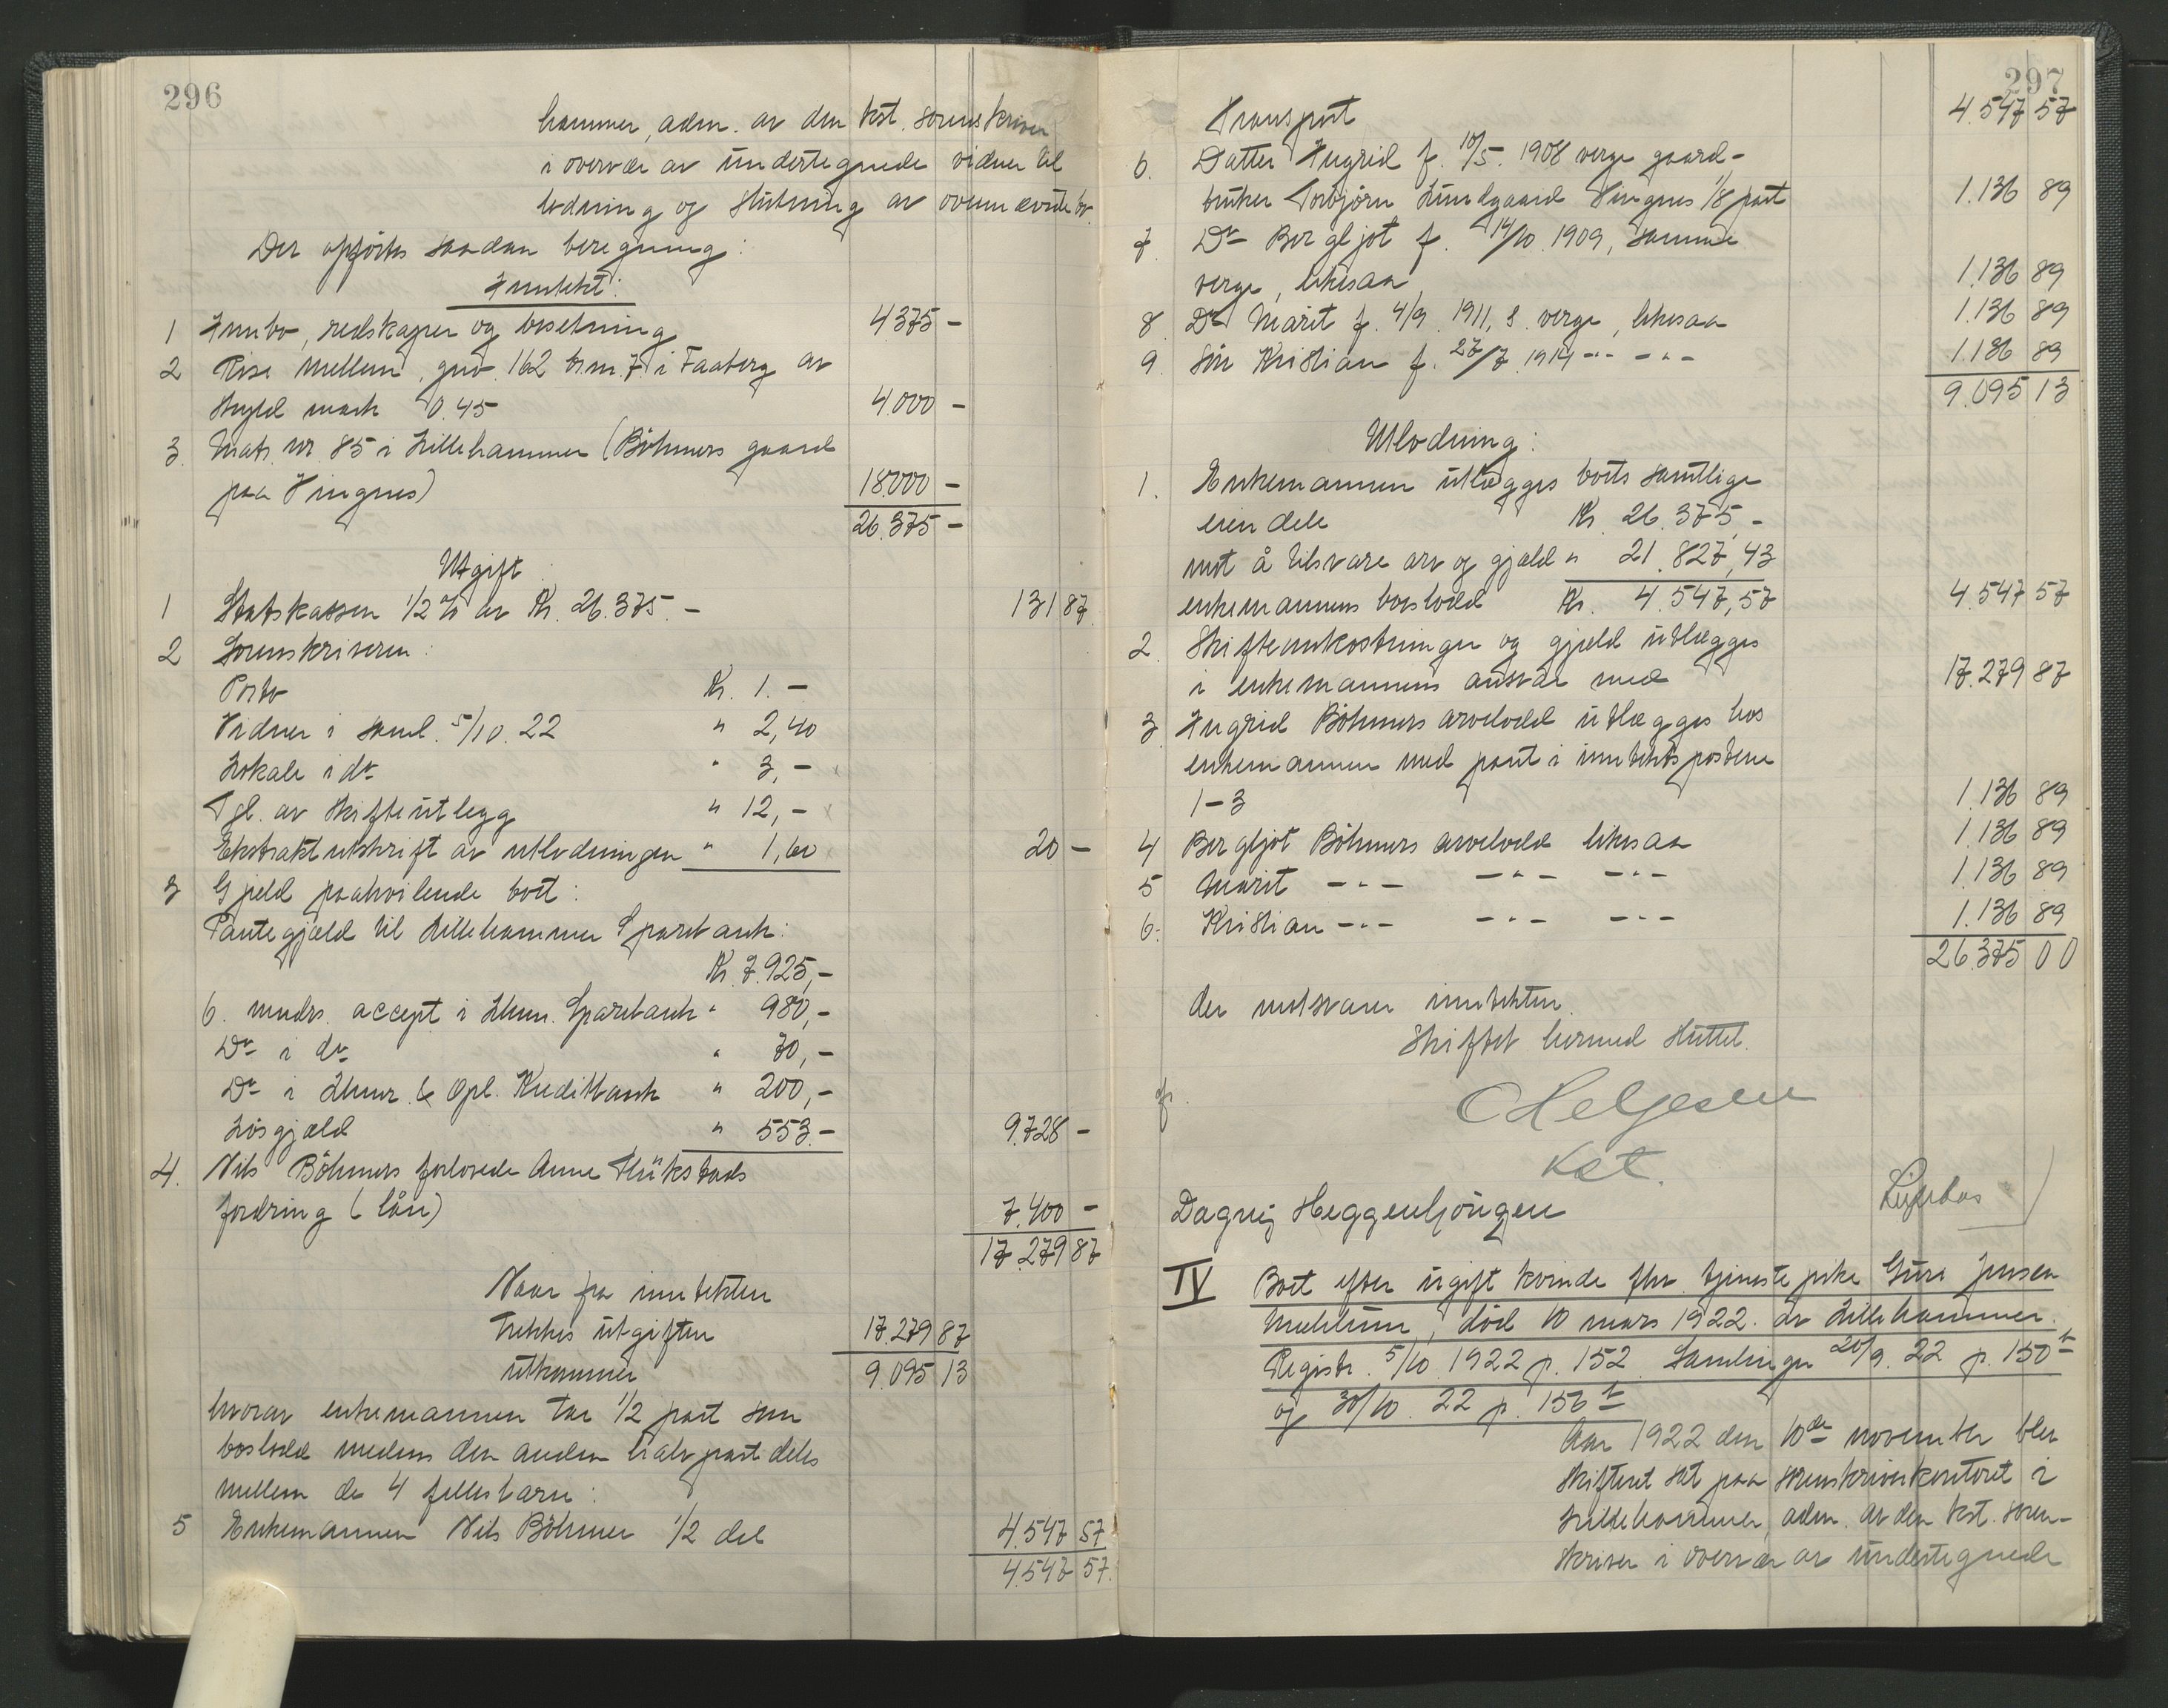 296
hammer, adm. av den kst. sorenskriver
i overvær av undertegnede vidner til
lodning og slutning av ovennævnte bo.
Der opførtes saadan beregning:
Inntekt:
1 Innbo, redskaper og besetning 4375 -
2 Rise mellem, gno. 162 br.nr. 7 i Faaberg av
skyld mark 0.45 4000 -
3. Matr. nr. 85 i Lillehammer (Böhmers gaard
paa Vingnes) 18000 -
26.375 -
Utgift
1 Statskassen 1/2 % av Kr. 26.375.- 131 87
2 Sorenskriveren:
Porto Kr. 1.-
Vidner i saml. 5/10. 22 " 2,40
Lokale i do " 3,-
Tgl. av skifteutlegg " 12,-
Ekstraktutskrift av utlodningen " 1,60 20 -
3 Gjeld paahvilende boet:
Pantegjæld til Lillehammer Sparebank:
Kr. 7.925,-
6. mndrs. accept i Lhmr. Sparebank " 980,-
Do i do " 70,-
Do i Lhmr. & Opl. Kreditbank " 200,-
Løsgjæld " 553.- 9.728 -
4. Nils Böhmers forlovede Anne
fordring (lån) 7.400 -
17.279 87
Naar fra inntekten
trekkes utgiften 17.279 87
utkommer 9.095 13
hvorav enkemannen tar 1/2 part som
boslodd medens den anden halvpart deles
mellem de 4 fellesbarn:
5 Enkemannen Nils Böhmer 1/2 del 4.547 57
4.547 57.
297
Transport 4.547 57
6. Datter Ingrid f. 10/5. 1908 verge gaard-
bruker Torbjörn Lundgaard Vingnes 1/8 part 1.136 89
7. Do Bergljot f. 14/10. 1909, samme
verge, likesaa 1.136 89
8. Do Marit f. 4/9. 1911, s. verge, likesaa 1.136 89
9. Sön Kristian f. 27/7. 1914 -"- -"- 1.136 89
9.095 13
Utlodning:
1. Enkemannen utlægges boets samtlige
eiendele Kr. 26.375,-
mot å tilsvare arv og gjæld " 21.827,43
enkemannens boslodd Kr. 4.547,57 4.547 57
2. Skifteomkostninger og gjæld utlægges
i enkemannens ansvar med 17.279 87
3. Ingrid Böhmers arvelodd utlægges hos
enkemannen med pant i inntektspostene
1-3 1.136 89
4 Bergljot Böhmers arvelodd likesaa 1.136 89
5 Marit -"- -"- -"- 1.136 89
6. Kristian -"- -"- -"- 1.136 89
26.375 00
der motsvarer inntekten.
Skiftet hermed sluttet.
CHelgesen
Kst.
Dagny Heggenhougen
IV Boet efter ugift kvinde fhv. tjenestepike Guri Jensen
Mæhlum, död 10 mars 1922. av Lillehammer.
Registr. 5/10 1922 p. 152 Samlinger 20/9. 22 p. 150 b
og 30/10. 22 p. 156 b
Aar 1922 den 10de november blev
skifteret sat paa sorenskriverkontoret i
Lillehammer, adm. av den kst. soren-
skriver i overvær av undertegnede